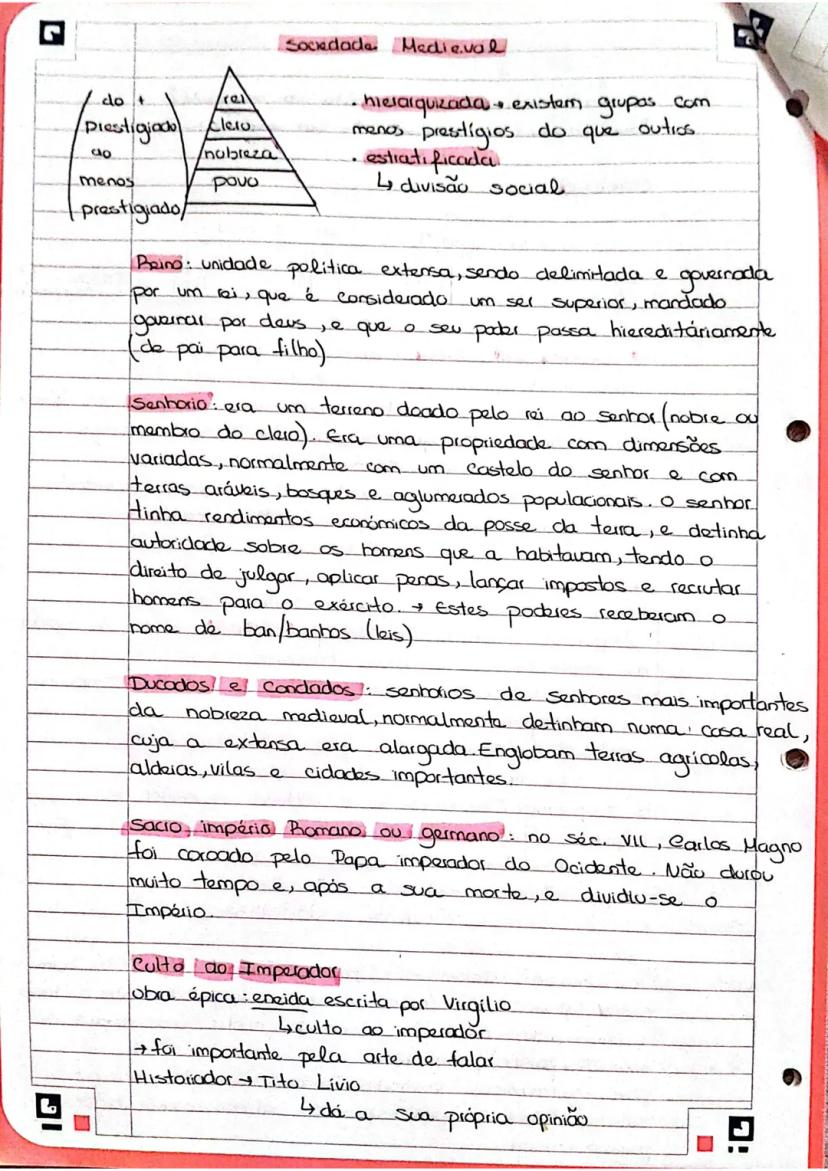 Sociedade Medieval
do +
prestigiado
ao
menos
prestigiado
rei
clero
nobreza
povo
• hierarquizada → existem grupos com
menos prestígios do que outros
• estratificada
↳ divisão social
Reino: unidade política extensa, sendo delimitada e governada
por um rei, que é considerado um ser superior, mandado
governar por deus, e que o seu poder passa hiereditáriamente
(de pai para filho)
Senhorio: era um terreno doado pelo rei ao senhor (nobre ou
membro do clero). Era uma propriedade com dimensões
variadas, normalmente com um castelo do senhor e com
terras aráveis, bosques e aglumerados populacionais. O senhor
tinha rendimentos económicos da posse da terra, e detinha
autoridade sobre os homens que a habitavam, tendo o
direito de julgar, aplicar penas, lançar impostos e recrutar
homens para o exército. → Estes poderes receberam o
nome de ban/banhos (leis)
Ducados e Condados: senhorios de senhores mais importantes
da nobreza medieval, normalmente detinham numa casa real,
cuja a extensa era alargada. Englobam terras agrícolas,
aldeias, vilas e cidades importantes.
Sacro império Romano ou germano: no séc. VII, Carlos Magno
foi coroado pelo Papa imperador do Ocidente. Não durou
muito tempo e, após a sua morte, e dividiu-se o
Império.
Culto ao Imperador
obra épica: eneida escrita por Virgílio
↳ culto ao imperador
→ foi importante pela arte de falar
Historiador → Tito Lívio
↳ dá a sua própria opinião